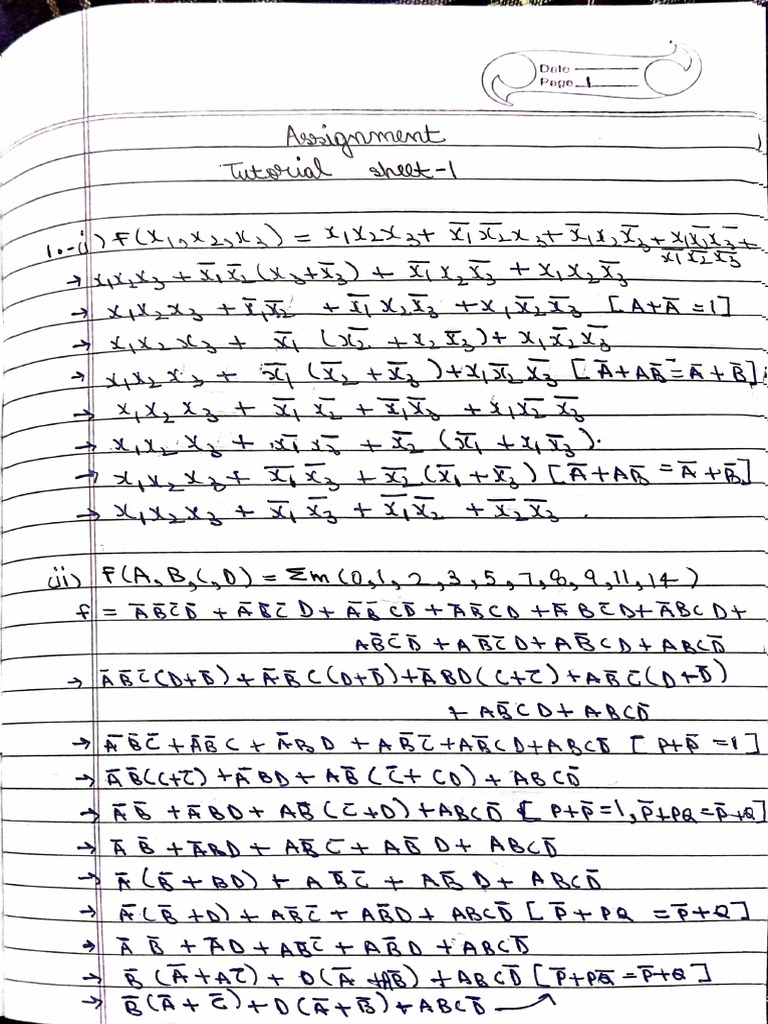 Date
Page 1
Assignment
Tutorial sheet-1
1.-(i) f(x₁,x₂,x₃) = x₁x₂x₃ + x̅₁x̅₂x₃ + x̅₁x₂x̅₃ + x̅₁x̅₂x̅₃ +
x₁x̅₂x̅₃
→ x₁x₂x₃ + x̅₁x̅₂(x₃+x̅₃) + x̅₁x₂x̅₃ + x₁x₂x̅₃
→ x₁x₂x₃ + x̅₁x̅₂ + x̅₁x₂x̅₃ + x₁x̅₂x̅₃ [A+A̅ =1]
→ x₁x₂x₃ + x̅₁ (x̅₂ + x₂x̅₃) + x₁x̅₂x̅₃
→ x₁x₂x₃ + x̅₁ (x̅₂ + x̅₃) + x₁x̅₂x̅₃ [A̅+AB̅ = A̅+B̅]
→ x₁x₂x₃ + x̅₁x̅₂ + x̅₁x̅₃ + x₁x̅₂x̅₃
→ x₁x₂x₃ + x̅₁x̅₃ + x̅₂ (x̅₁ + x₁x̅₃).
→ x₁x₂x₃ + x̅₁x̅₃ + x̅₂(x̅₁+x̅₃) [A̅+AB̅ = A̅+B̅]
→ x₁x₂x₃ + x̅₁x̅₃ + x̅₁x̅₂ + x̅₂x̅₃.
(ii) f(A,B,C,D) = Σm(0,1,2,3,5,7,8,9,11,14)
f = A̅B̅C̅D̅ + A̅B̅C̅D + A̅B̅CD̅ + A̅B̅CD + A̅BC̅D + A̅BCD +
AB̅C̅D̅ + AB̅C̅D + AB̅CD + ABCD̅
→ A̅B̅C̅(D+D̅) + A̅B̅C(D+D̅) + A̅BD(C+C̅) + AB̅C̅(D+D̅)
+ AB̅CD + ABCD̅
→ A̅B̅C̅ + A̅B̅C + A̅BD + AB̅C̅ + AB̅CD + ABCD̅ [P+P̅ =1]
→ A̅B̅(C+C̅) + A̅BD + AB̅(C̅+CD) + ABCD̅
→ A̅B̅ + A̅BD + AB̅(C̅+D) + ABCD̅ [P+P̅=1, P̅+PQ=P̅+Q]
→ A̅B̅ + A̅BD + AB̅C̅ + AB̅D + ABCD̅
→ A̅(B̅+BD) + AB̅C̅ + AB̅D + ABCD̅
→ A̅(B̅+D) + AB̅C̅ + AB̅D + ABCD̅ [P̅+PQ = P̅+Q]
→ A̅B̅ + A̅D + AB̅C̅ + AB̅D + ABCD̅
→ B̅(A̅+AC̅) + D(A̅+AB̅) + ABCD̅ [P̅+PQ̅ = P̅+Q]
→ B̅(A̅+C̅) + D(A̅+B̅) + ABCD̅